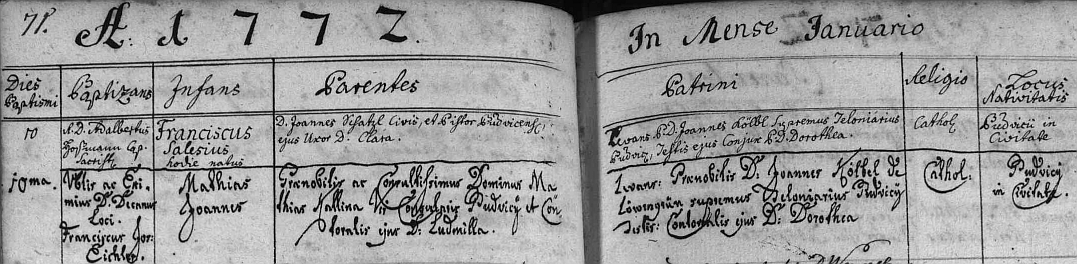 71.
A: d 1772.
In Mense Januario
Dies Baptismi
Baptizans
Infans
Parentes
Patrini
Religio
Locus Nativitatis
10
A.D. Adalbertus
Hofzmann Cap.
Sacrist.
Franciscus
Salesius
hodie natus
D. Joannes Schatzl Civis, et Pistor Budvicens,
ejus Uxor D. Clara.
Levans P.D. Joannes Kölbl Supremus Teloniarius
Budvicij, Testis ejus Conjux P.D. Dorothea.
Cathol:
Budvicii in
Civitate
19ma.
Nobilis ac Exi-
mius D: Decanus
Loci.
Franciscus Jos:
Eichler.
Mathias
Joannes
Praenobilis ac Consultissimus Dominus Ma-
thias Kallina Consularis Budvicij et Con-
thoralis ejus D: Ludmilla.
Levans: Praenobilis D: Joannes Kölbel de
Löwengrün supremus Teloniarius Budvicij
Testis: Conthoralis ejus D: Dorothea
Cathol:
Budvicij
in Civitate.